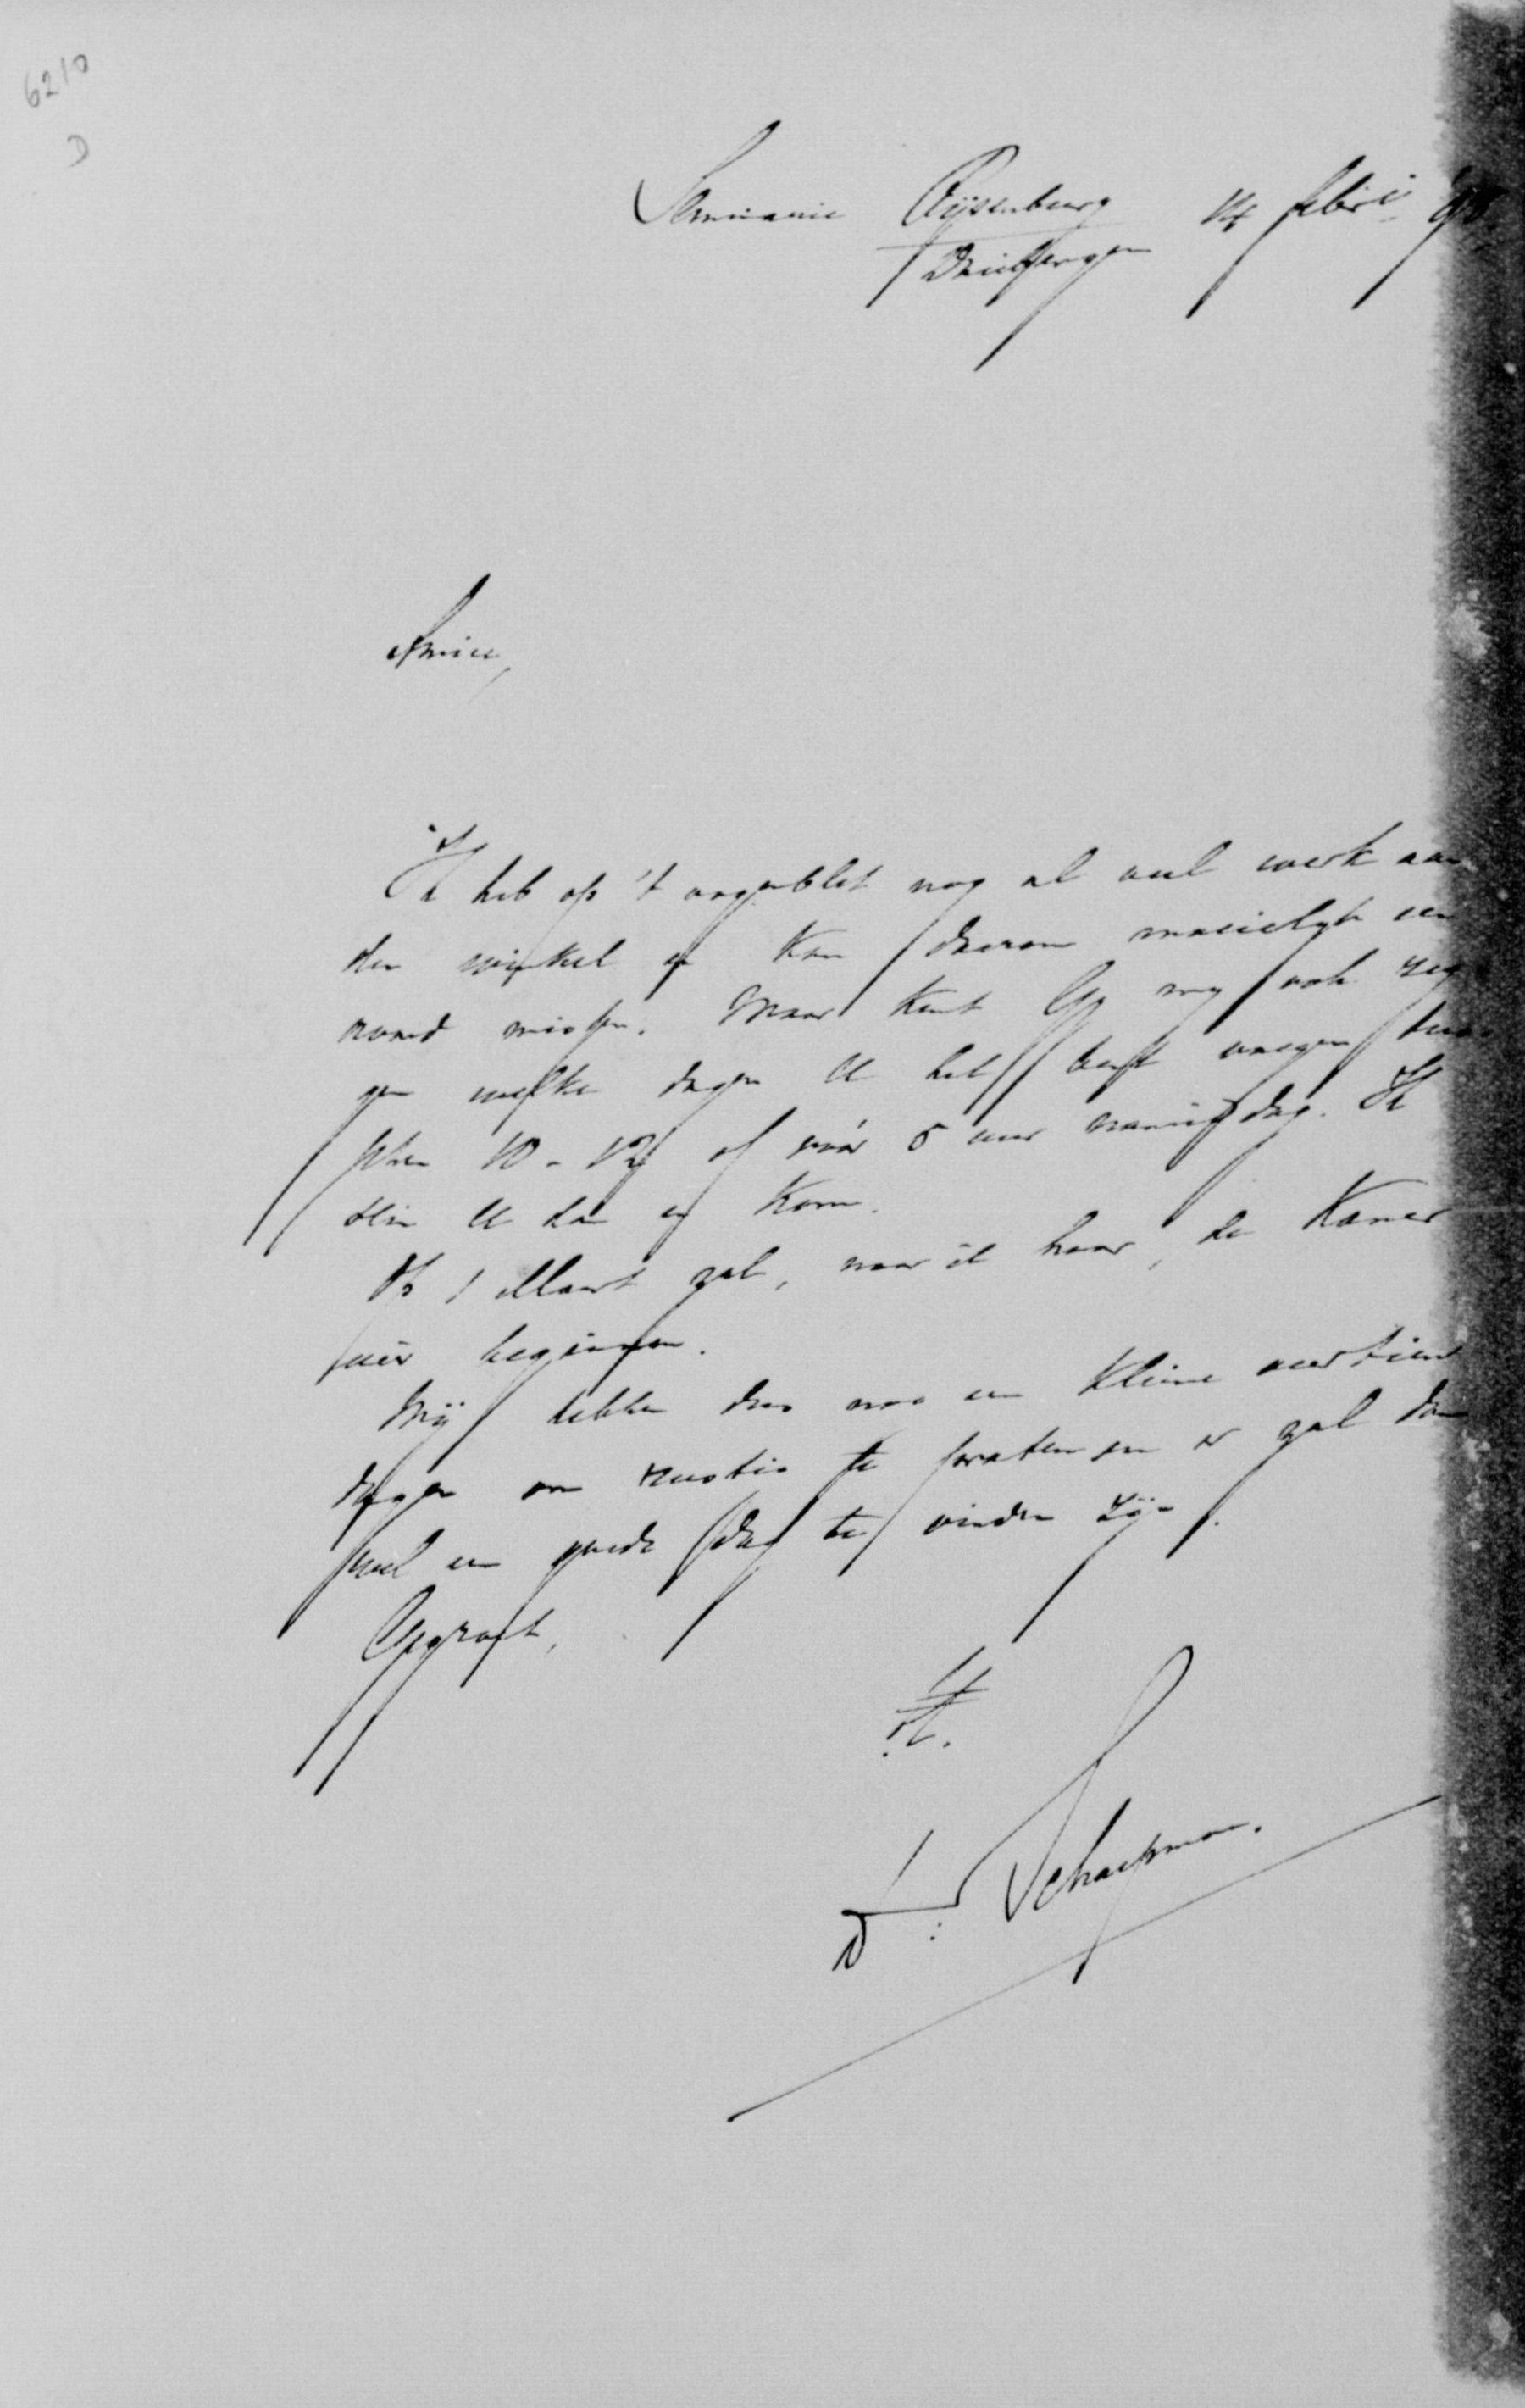 6210
D
Seminarie Rijsenburg 14 febri
Driebergen
Amice,
Ik heb op 't oogenblik nog al veel werk aan
den winkel en kan daarom moeielijk een
avond missen. Maar kunt Gij mij ook zeg
gen welke dagen U het best tus
schen 10 - 12 of vóór 5 uur namiddag. Ik
U dan en kom.
Op 1 Maart zal, naar ik hoor, de Kamer
weer beginnen.
Wij hebben dus nog een kleine veertien
dagen om rustig te praten en er zal dan
wel een goede dag te vinden zijn.
Gegroet,
tt.
Dr. Schaepman.